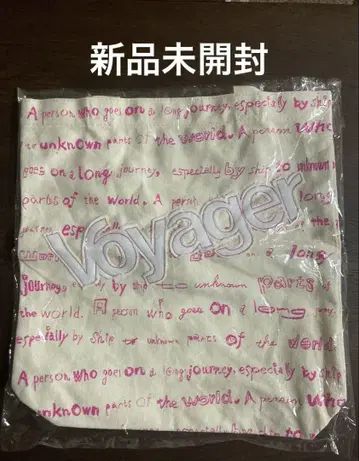 新品未開封
A person who goes on a long journey, especially by ship
to unknown parts of the world. A person who
goes on a long journey, especially by ship to unknown
parts of the world. A person long
journey esp the
Voyager
on a long
journey, by ship to unknown parts
the world. A person who goes on a long
especially by ship to unknown parts of the world.
A person who goes on a long journey, especially by ship
unknown parts of the world. A person who
especially